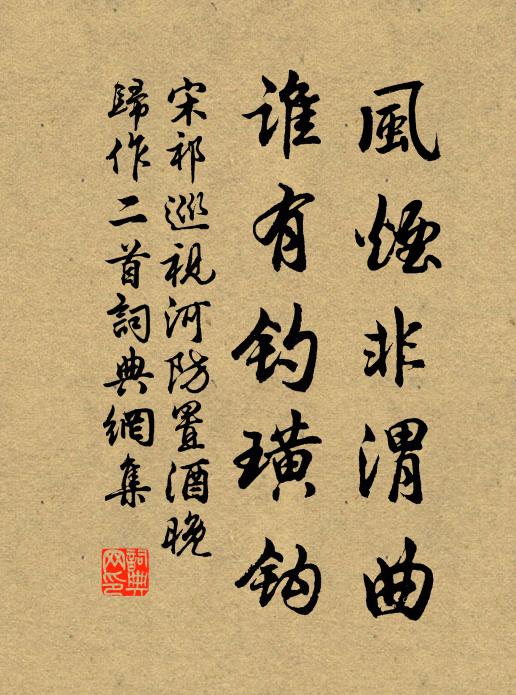 風煙非渭曲
誰有釣璜鈎
宋祁巡視河防置酒晚
歸作二首詞典網集
詞典網印